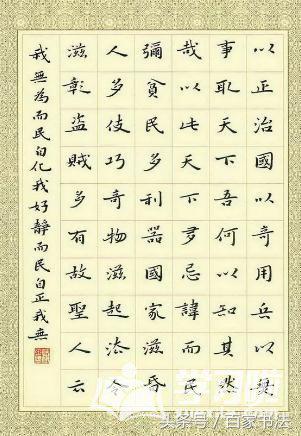 以正治國以奇用兵以無
事取天下吾何以知其然
哉以此天下多忌諱而民
彌貧民多利器國家滋昏
人多伎巧奇物滋起法令
滋彰盜賊多有故聖人云
我無為而民自化我好靜而民自正我無
头条号/百家书法